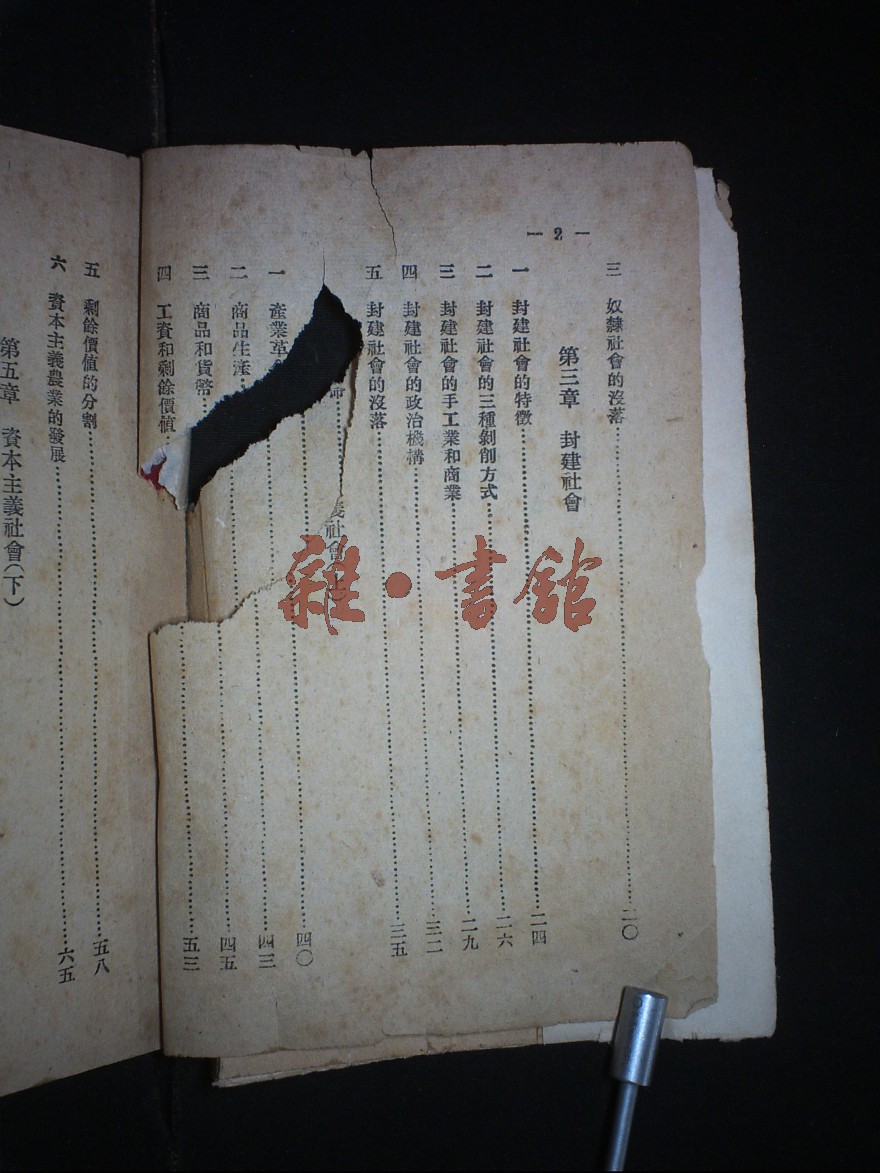 — 2 —
三 奴隸社會的沒落……二〇
第三章 封建社會
一 封建社會的特徵……二四
二 封建社會的三種剝削方式……二六
三 封建社會的手工業和商業……二九
四 封建社會的政治機構……三二
五 封建社會的沒落……三五
義社會(上)
一 產業革……四〇
二 商品生產……四三
三 商品和貨幣……四五
四 工資和剩餘價値……五三
五 剩餘價値的分割……五八
六 資本主義農業的發展……六五
第五章 資本主義社會(下)
雜·書館